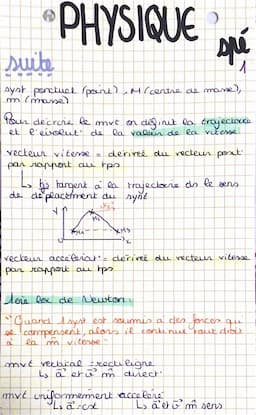 PHYSIQUE
spé
suite
1
syst ponctuel (point), M (centre de masse),
m (masse)
Pour décrire le mvt on définit la trajectoire
et l'évolut° de la valeur de la vitesse
vecteur vitesse = dérivée du vecteur posit°
par rapport au tps
↳ tjs tangent à la trajectoire ds le sens
de déplacement du syst
y
x
vecteur accélérat° = dérivée du vecteur vitesse
par rapport au tps
1ère loi de Newton:
"Quand 1 syst est soumis à des forces qui
se compensent, alors il continue tout droit
à la m̂ vitesse"
mvt vertical : rectiligne
↳ a⃗ et v⃗ m̂ direct°
mvt uniformément accéléré
↳ a⃗ = cst ↳ a⃗ et v⃗ m̂ sens